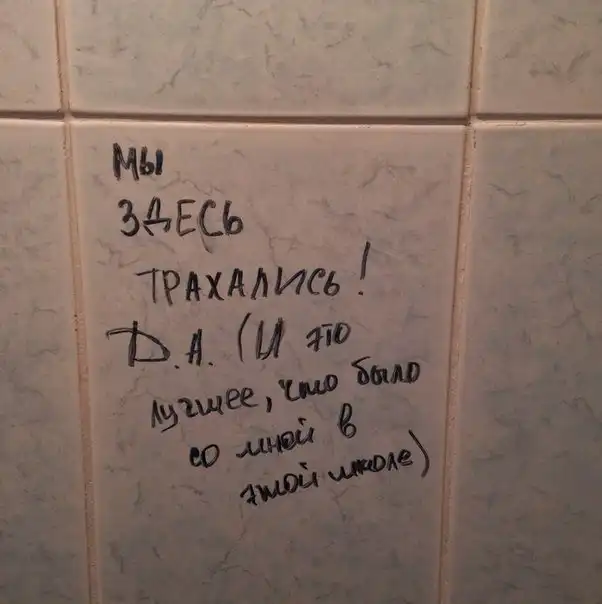 мы
ЗДЕСЬ
ТРАХАЛИСЬ!
D.A. (И это
лучшее, что было
со мной в
этой школе)